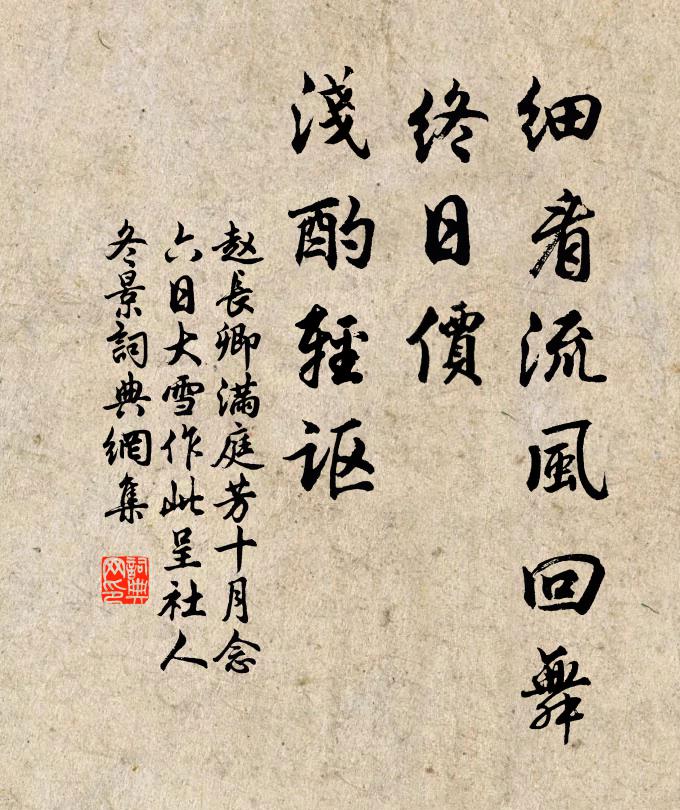 细看流風回舞
终日價
淺酌輕讴
赵長卿满庭芳十月念
六日大雪作此呈社人
冬景詞典網集
詞典
网印